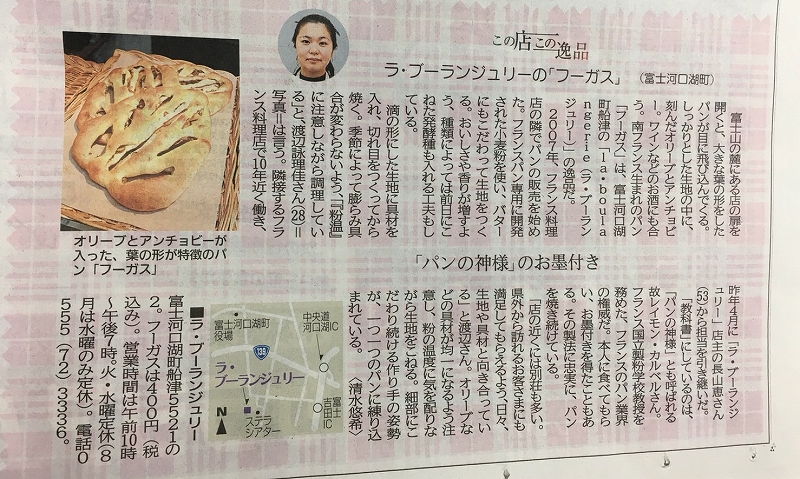 この店この逸品
ラ・ブーランジュリーの「フーガス」
(富士河口湖町)
富士山の麓にある店の扉を
開くと、大きな葉の形をした
パンが目に飛び込んでくる。
しっかりとした生地の中に、
刻んだオリーブとアンチョビ
ー。ワインなどのお酒にも合
う。南フランス生まれのパン
「フーガス」は、富士河口湖
町船津の「la・boula
ngerie(ラ・ブーラン
ジュリー)」の逸品だ。
2007年、フランス料理
店の隣でパンの販売を始め
た。フランスパン専用に開発
された小麦粉を使い、バター
にもこだわって生地をつく
る。おいしさや香りが増すよ
う、種類によっては前日にこ
ねた発酵種も入れる工夫もし
ている。
滴の形にした生地に具材を
入れ、切れ目をつくってから
焼く。季節によって膨らみ具
合が変わらないよう、「『粉温』
に注意しながら調理してい
る」と、渡辺詠理佳さん(28)=
写真=は言う。隣接するフラ
ンス料理店で10年近く働き、
オリーブとアンチョビーが
入った、葉の形が特徴のパ
ン「フーガス」
「パンの神様」のお墨付き
昨年4月に「ラ・ブーランジ
ュリー」店主の長山恵さん
(53)から担当を引き継いだ。
「教科書」にしているのは、
「パンの神様」とも呼ばれる
故レイモン・カルベルさん。
フランス国立製粉学校教授を
務めた、フランスのパン業界
の権威だ。本人に食べてもら
い、お墨付きを得たこともあ
る。その製法に忠実に、パン
を焼き続けている。
「店の近くには別荘も多い。
県外から訪れるお客さまにも
満足してもらえるよう、日々、
生地や具材と向き合ってい
る」と渡辺さん。オリーブな
どの具材が均一になるよう注
意し、粉の温度に気を配りな
がら生地をこねる。細部にこ
だわり続ける作り手の姿勢
が、一つ一つのパンに練り込
まれている。〈清水悠希〉
中央道
河口湖IC
富士河口湖町
役場
139
ラ・
ブーランジュリー
富士
吉田
IC
ステラ
シアター
N
■ラ・ブーランジュリー
富士河口湖町船津5521の
2。フーガスは400円(税
込み)。営業時間は午前10時
〜午後7時。火・水曜定休(8
月は水曜のみ定休)。電話0
555(72)3336。